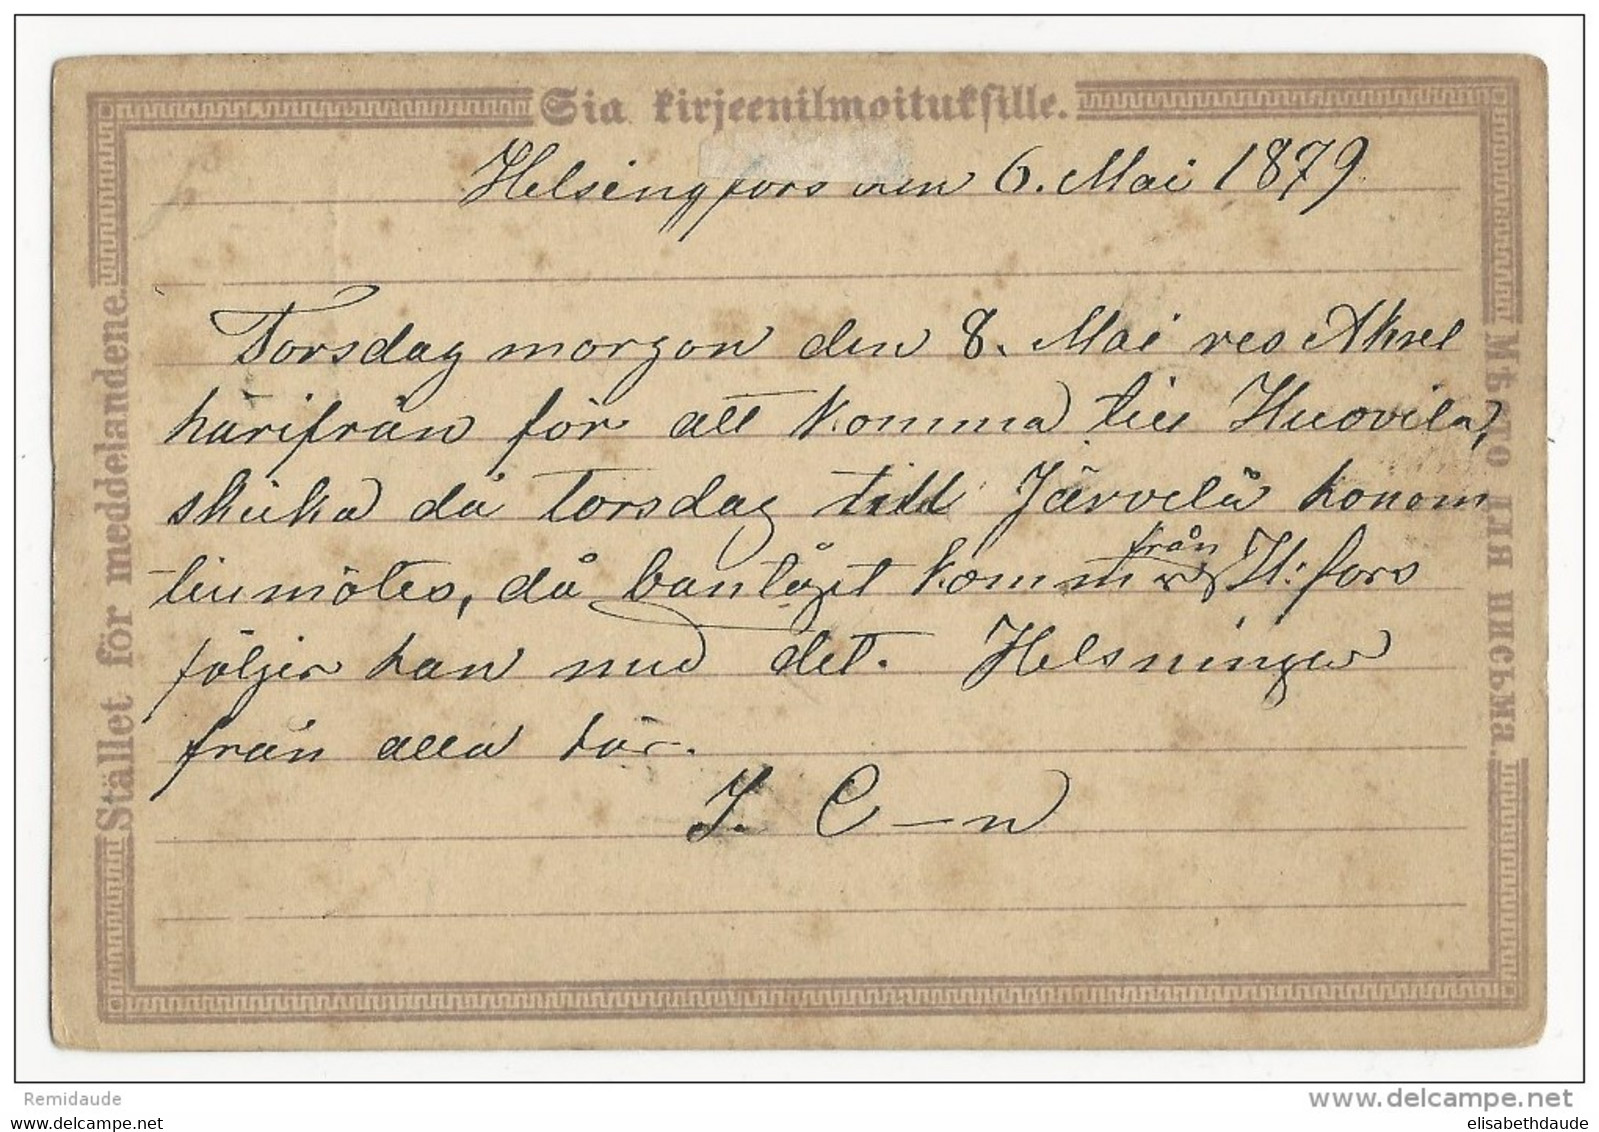 Sia kirjeenilmoituksille.
Helsingfors den 6. Mai 1879.
Torsdag morgon den 8. Mai res Aksel
härifrån för att komma till Huovila,
skicka då torsdag till Järvelä honom
till mötes, då bantåget kommer från H:fors
följer han med det. Helsningar
från alla här.
J. C—n
Stället för meddelandene.
Мѣсто для письма.
Remidaude
www.delcampe.net
www.delcampe.com
elisabethdaude